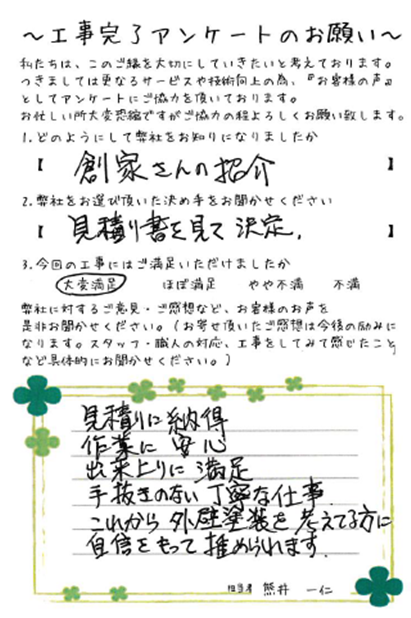 ～工事完了アンケートのお願い～
私たちは、このご縁を大切にしていきたいと考えております。
つきましては更なるサービスや技術向上の為、『お客様の声』
としてアンケートにご協力を頂いております。
お忙しい所大変恐縮ですがご協力の程よろしくお願い致します。
1.どのようにして弊社をお知りになりましたか
【 創家さんの紹介 】
2.弊社をお選び頂いた決め手をお聞かせください
【 見積り書を見て決定. 】
3.今回の工事にはご満足いただけましたか
大変満足 ほぼ満足 やや不満 不満
弊社に対するご意見・ご感想など、お客様のお声を
是非お聞かせください。(お寄せ頂いたご感想は今後の励みに
なります。スタッフ・職人の対応、工事をしてみて感じたこと
など具体的にお聞かせください。)
見積りに納得
作業に安心
出来上りに満足
手抜きのない丁寧な仕事
これから外壁塗装を考えてる方に
自信をもって推められます.
担当者 熊井 一仁